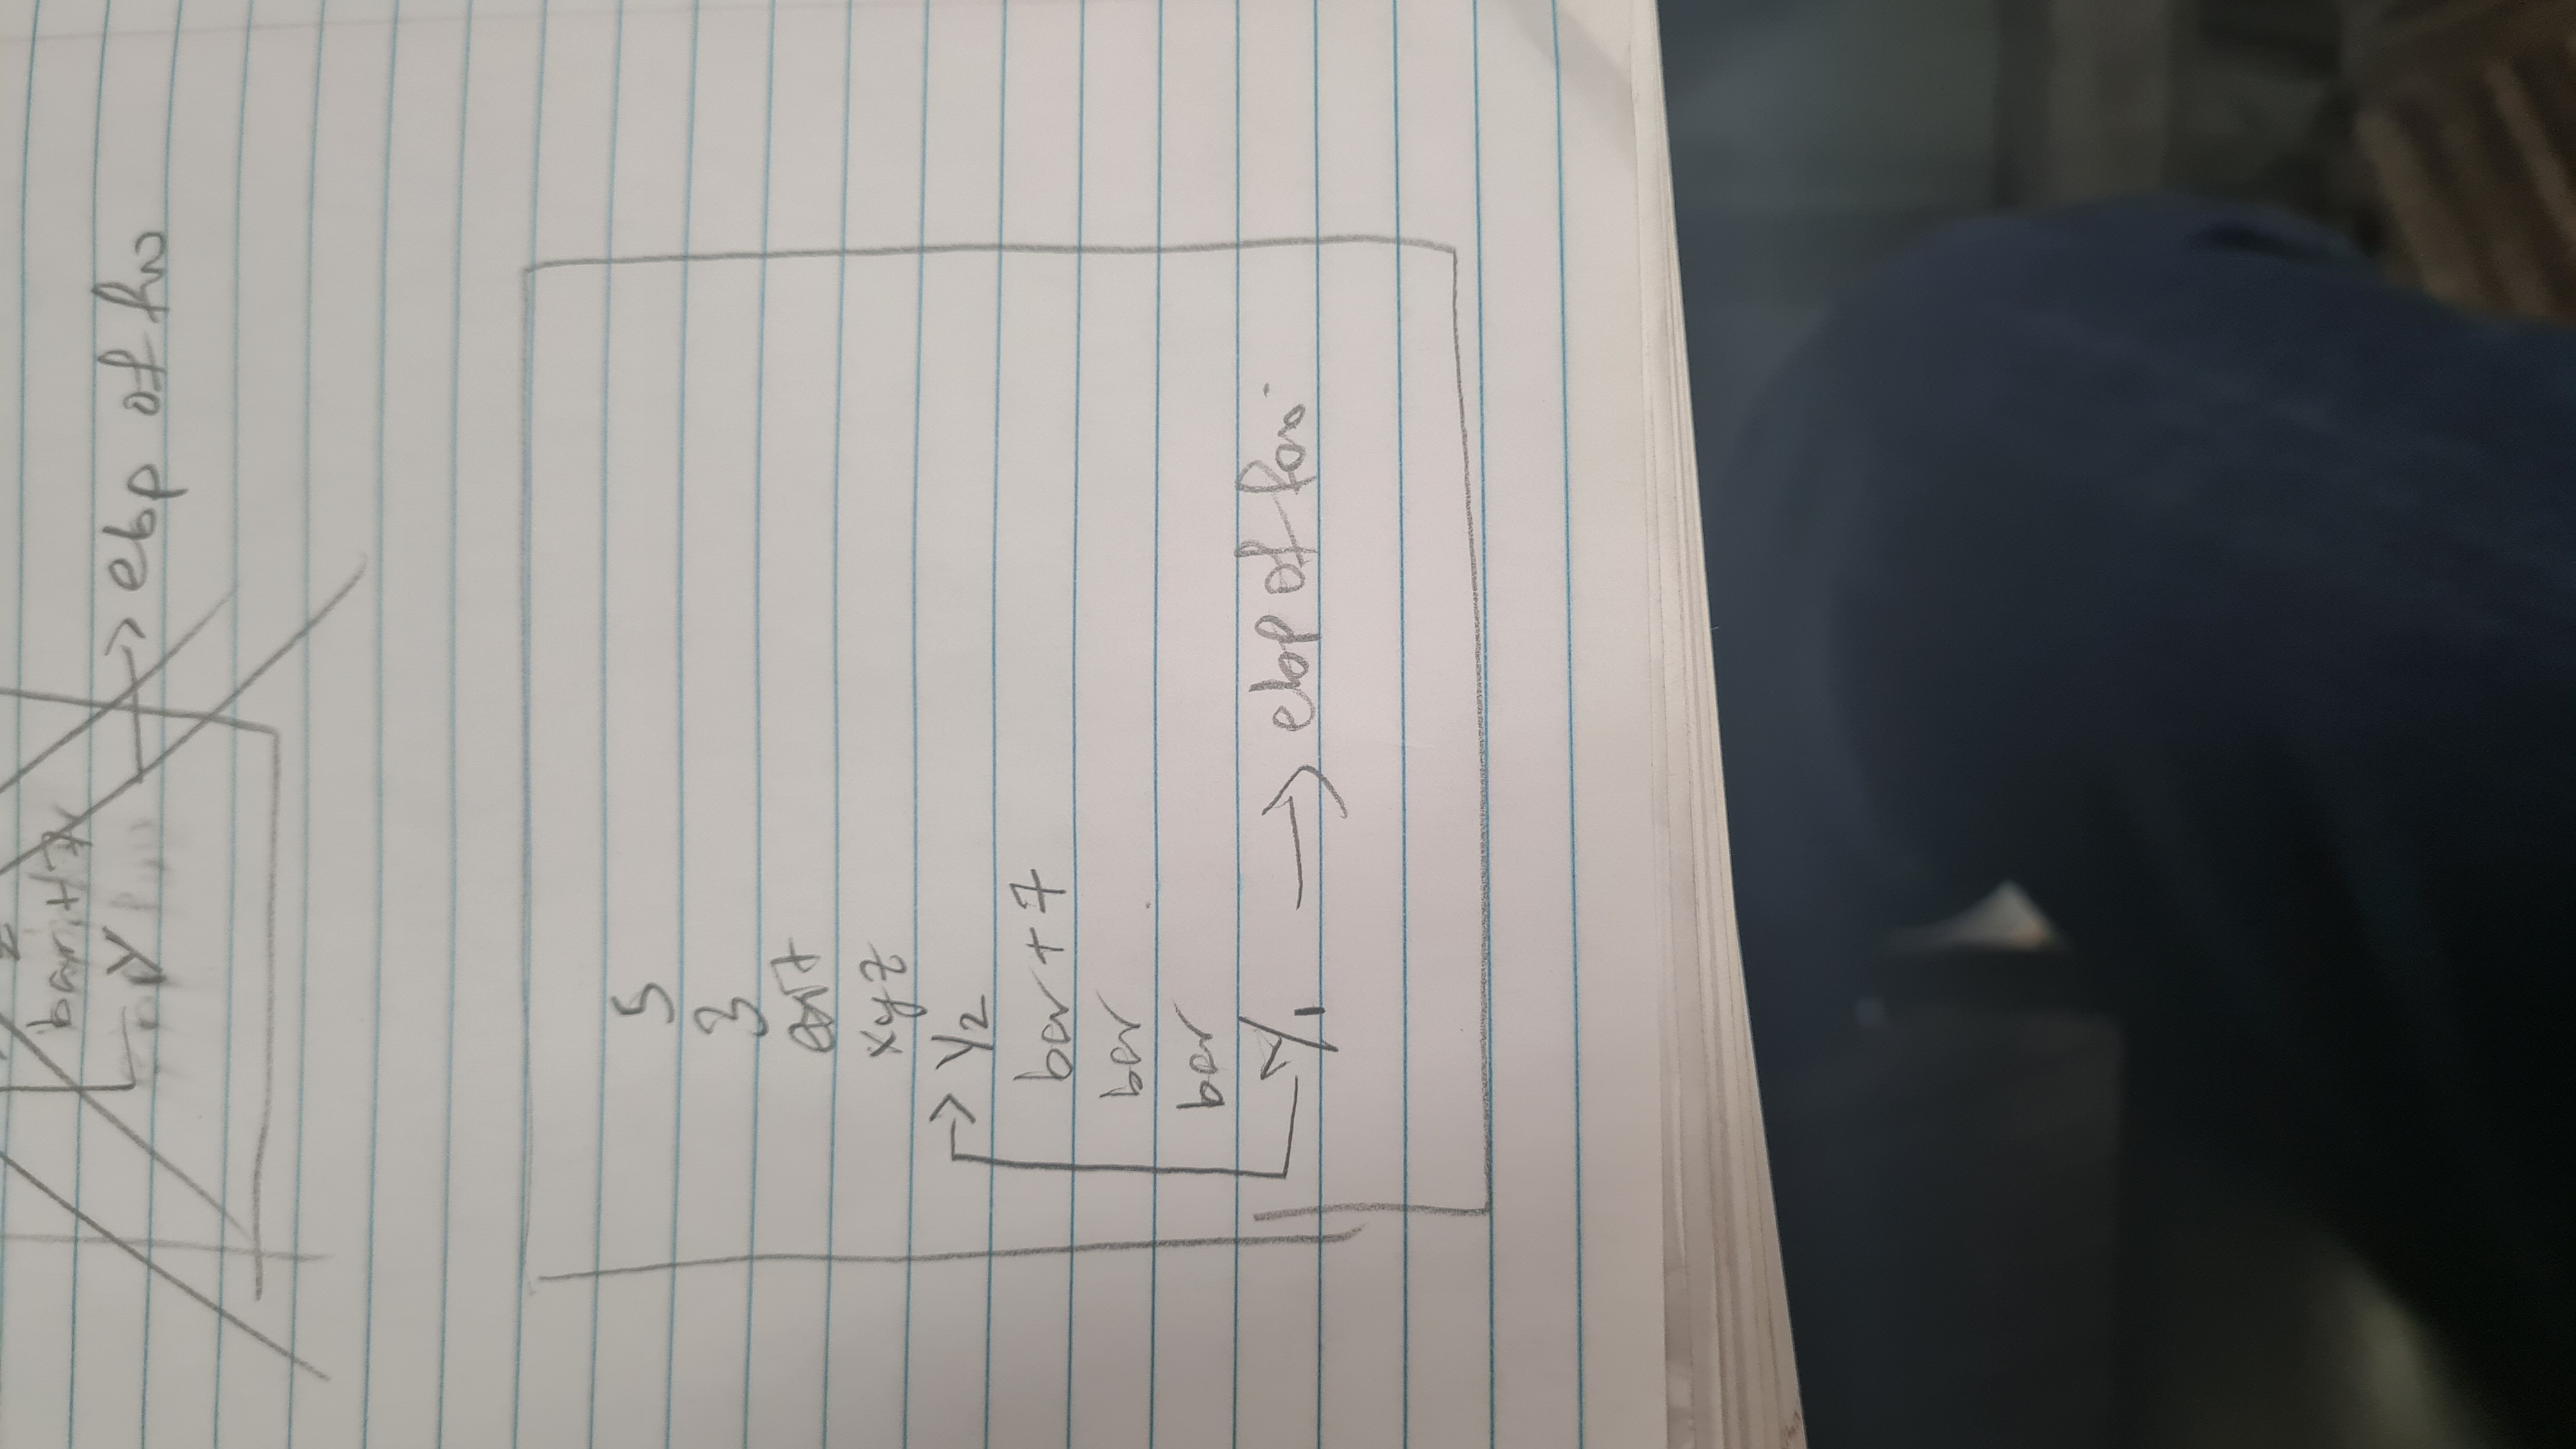 bar + 7
y → ebp of foo
5
3
exit
xyz
→ Y2
bar + 7
bar
bar
Y1 → ebp of foo